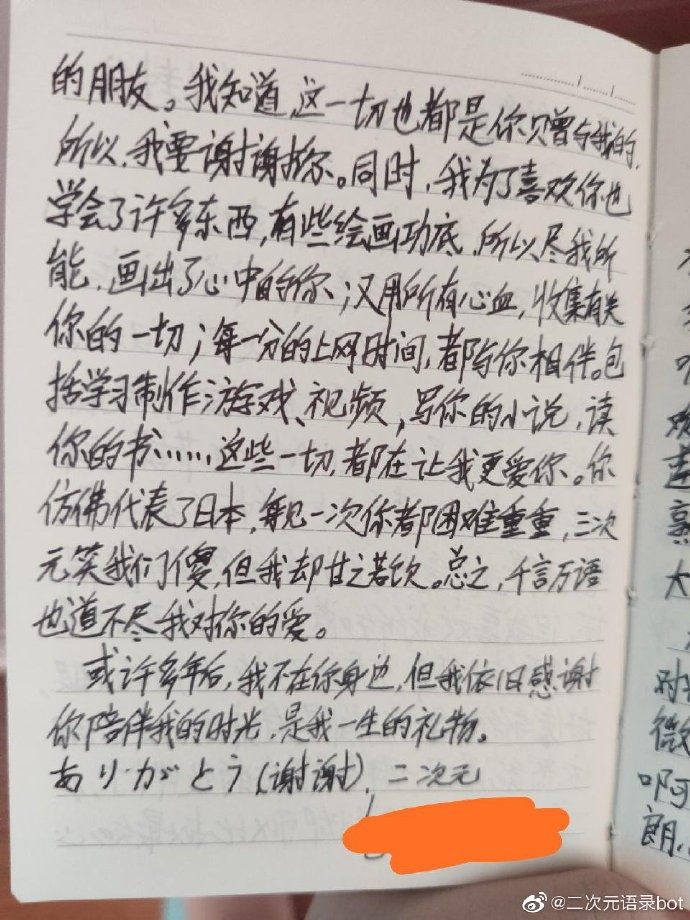 的朋友。我知道,这一切也都是你赠与我的,
所以,我要谢谢你。同时,我为了喜欢你也
学会了许多东西,有些绘画功底,所以尽我所
能,画出了心中的你;又用所有心血,收集有关
你的一切;每一分的上网时间,都与你相伴。包
括学习制作游戏、视频,写你的小说,读
你的书……这些一切,都在让我更爱你。你
仿佛代表了日本,每见一次你都困难重重,三次
元笑我们傻,但我却甘之若饮。总之,千言万语
也道不尽我对你的爱。
或许多年后,我不在你身边,但我依旧感谢
你陪伴我的时光,是我一生的礼物。
ありがとう(谢谢),二次元
大
对
微
啊
郎
@二次元语录bot